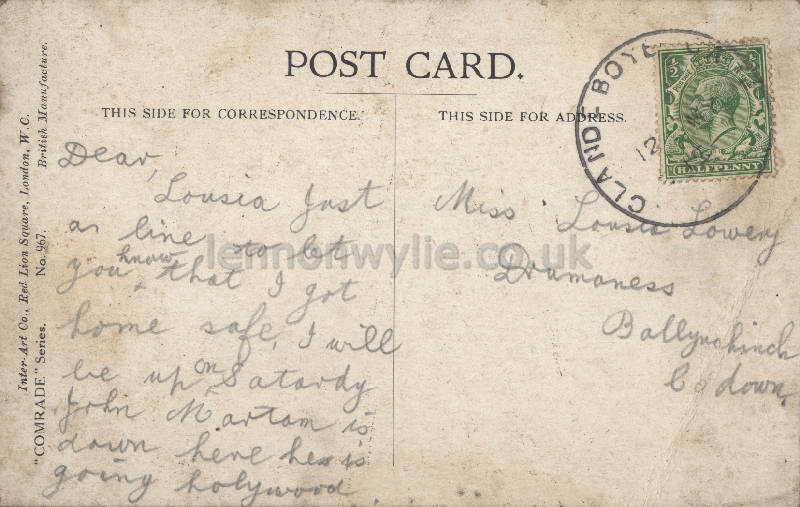 POST CARD.
THIS SIDE FOR CORRESPONDENCE.
THIS SIDE FOR ADDRESS.
Inter-Art Co., Red Lion Square, London, W.C.
British Manufacture.
"COMRADE" Series. No. 967.
Dear,
Lousia Just
a line to let
you know that I got
home safe, I will
be up on Satardy
John Martam is
down here hes is
going holywood
Miss Lousia Lowery
Drumaness
Ballynahinch
Co down,
CLANDEBOYE
12
½ ½
HALFPENNY
lennonwylie.co.uk